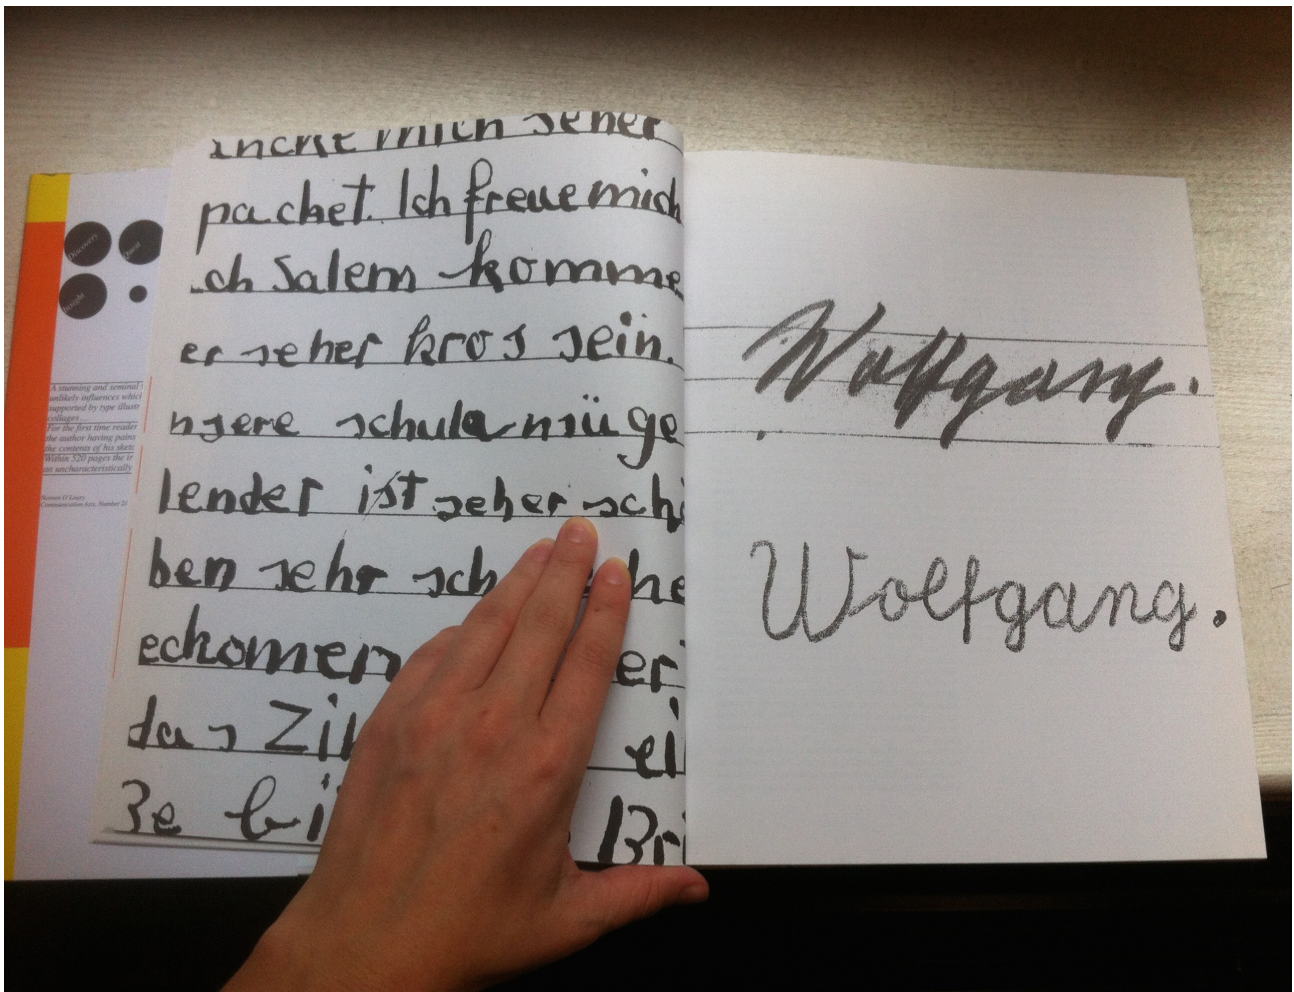 Discovery
Quest
Insight
A stunning and seminal
unlikely influences whic
supported by type illustr
collages
For the first time reader
the author having pains
the contents of his sket
Within 520 pages the ir
an uncharacteristically
Communication Arts, Number 2
mich seher
pachet. Ich freue mich
ch Salem komme
er seher kros sein.
nsere schule müge
lender ist seher sch
ben sehr sch he
eckomen er
das Zi ei
Be bi Bri
Wolfgang.
Wolfgang.